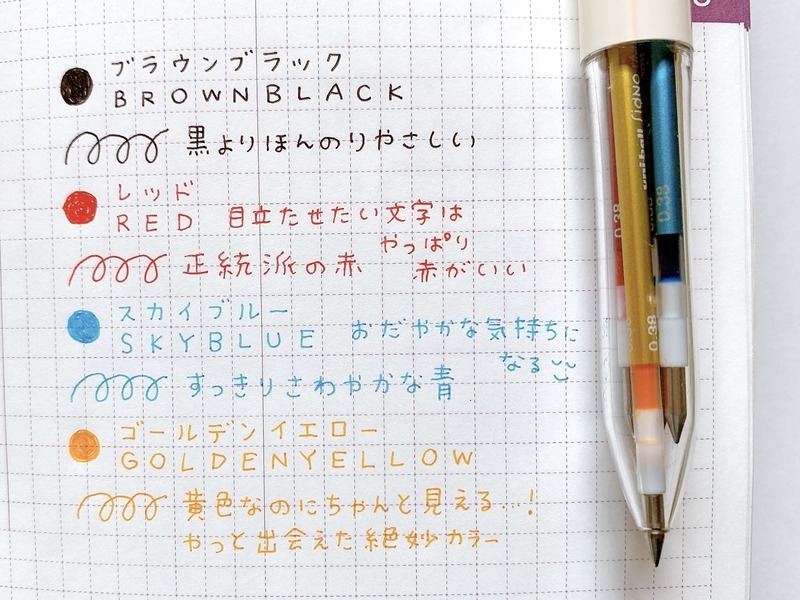 ブラウンブラック
BROWNBLACK
黒よりほんのりやさしい
レッド
RED 目立たせたい文字は
やっぱり
赤がいい
正統派の赤
スカイブルー
SKYBLUE おだやかな気持ちに
なる
すっきりさわやかな青
ゴールデンイエロー
GOLDENYELLOW
黄色なのにちゃんと見える…!
やっと出会えた絶妙カラー
uni-ball SigNO
0.38
0.38
0.38